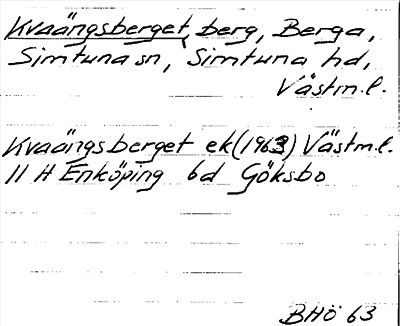 Kvaängsberget, berg, Berga,
Simtuna sn, Simtuna hd,
Västm.l.
Kvaängsberget ek (1963) Västm.l.
11 H Enköping 6d Göksbo
BHÖ 63